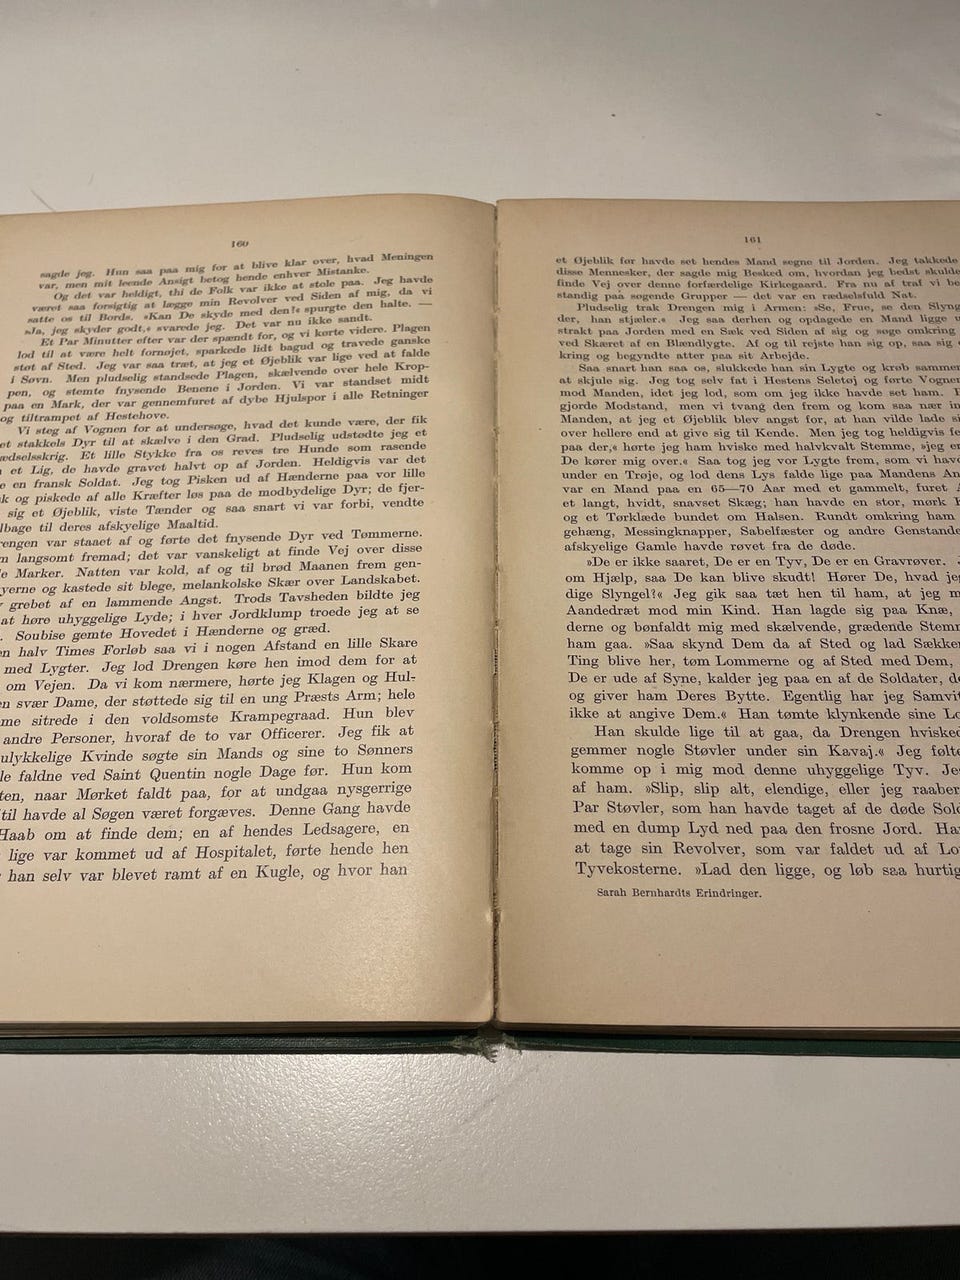 160
sagde jeg. Hun saa paa mig for at blive klar over, hvad Meningen
var, men mit leende Ansigt betog hende enhver Mistanke.
Og det var heldigt, thi de Folk var ikke at stole paa. Jeg havde
været saa forsigtig at lægge min Revolver ved Siden af mig, da vi
satte os til Bords. »Kan De skyde med den?« spurgte den halte. —
»Ja, jeg skyder godt,« svarede jeg. Det var nu ikke sandt.
Et Par Minutter efter var der spændt for, og vi kørte videre. Plagen
lod til at være helt fornøjet, sparkede lidt bagud og travede ganske
støt af Sted. Jeg var saa træt, at jeg et Øjeblik var lige ved at falde
i Søvn. Men pludselig standsede Plagen, skælvende over hele Krop-
pen, og stemte fnysende Benene i Jorden. Vi var standset midt
paa en Mark, der var gennemfuret af dybe Hjulspor i alle Retninger
og tiltrampet af Hestehove.
Vi steg af Vognen for at undersøge, hvad det kunde være, der fik
et stakkels Dyr til at skælve i den Grad. Pludselig udstødte jeg et
ædselsskrig. Et lille Stykke fra os reves tre Hunde som rasende
et Lig, de havde gravet halvt op af Jorden. Heldigvis var det
e en fransk Soldat. Jeg tog Pisken ud af Hænderne paa vor lille
k og piskede af alle Kræfter løs paa de modbydelige Dyr; de fjer-
sig et Øjeblik, viste Tænder og saa snart vi var forbi, vendte
lbage til deres afskyelige Maaltid.
rengen var staaet af og førte det fnysende Dyr ved Tømmerne.
m langsomt fremad; det var vanskeligt at finde Vej over disse
e Marker. Natten var kold, af og til brød Maanen frem gen-
yerne og kastede sit blege, melankolske Skær over Landskabet.
grebet af en lammende Angst. Trods Tavsheden bildte jeg
at høre uhyggelige Lyde; i hver Jordklump troede jeg at se
. Soubise gemte Hovedet i Hænderne og græd.
n halv Times Forløb saa vi i nogen Afstand en lille Skare
med Lygter. Jeg lod Drengen køre hen imod dem for at
om Vejen. Da vi kom nærmere, hørte jeg Klagen og Hul-
n svær Dame, der støttede sig til en ung Præsts Arm; hele
me sitrede i den voldsomste Krampegraad. Hun blev
andre Personer, hvoraf de to var Officerer. Jeg fik at
ulykkelige Kvinde søgte sin Mands og sine to Sønners
le faldne ved Saint Quentin nogle Dage før. Hun kom
ten, naar Mørket faldt paa, for at undgaa nysgerrige
til havde al Søgen været forgæves. Denne Gang havde
Haab om at finde dem; en af hendes Ledsagere, en
lige var kommet ud af Hospitalet, førte hende hen
han selv var blevet ramt af en Kugle, og hvor han
161
et Øjeblik før havde set hendes Mand segne til Jorden. Jeg takkede
disse Mennesker, der sagde mig Besked om, hvordan jeg bedst skulde
finde Vej over denne forfærdelige Kirkegaard. Fra nu af traf vi be-
standig paa søgende Grupper — det var en rædselsfuld Nat.
Pludselig trak Drengen mig i Armen: »Se, Frue, se den Slyng
der, han stjæler.« Jeg saa derhen og opdagede en Mand ligge u
strakt paa Jorden med en Sæk ved Siden af sig og søge omkring
ved Skæret af en Blændlygte. Af og til rejste han sig op, saa sig
kring og begyndte atter paa sit Arbejde.
Saa snart han saa os, slukkede han sin Lygte og krøb sammen
at skjule sig. Jeg tog selv fat i Hestens Seletøj og førte Vogne
mod Manden, idet jeg lod, som om jeg ikke havde set ham.
gjorde Modstand, men vi tvang den frem og kom saa nær in
Manden, at jeg et Øjeblik blev angst for, at han vilde lade si
over hellere end at give sig til Kende. Men jeg tog heldigvis fe
paa der,« hørte jeg ham hviske med halvkvalt Stemme, »jeg er
De kører mig over.« Saa tog jeg vor Lygte frem, som vi hav
under en Trøje, og lod dens Lys falde lige paa Mandens An
var en Mand paa en 65—70 Aar med et gammelt, furet A
et langt, hvidt, snavset Skæg; han havde en stor, mørk
og et Tørklæde bundet om Halsen. Rundt omkring ham
gehæng, Messingknapper, Sabelfæster og andre Genstande
afskyelige Gamle havde røvet fra de døde.
»De er ikke saaret, De er en Tyv, De er en Gravrøver.
om Hjælp, saa De kan blive skudt! Hører De, hvad je
dige Slyngel?« Jeg gik saa tæt hen til ham, at jeg m
Aandedræt mod min Kind. Han lagde sig paa Knæ,
derne og bønfaldt mig med skælvende, grædende Stemm
ham gaa. »Saa skynd Dem da af Sted og lad Sække
Ting blive her, tøm Lommerne og af Sted med Dem,
De er ude af Syne, kalder jeg paa en af de Soldater, d
og giver ham Deres Bytte. Egentlig har jeg Samvit
ikke at angive Dem.« Han tømte klynkende sine Lo
Han skulde lige til at gaa, da Drengen hvisked
gemmer nogle Støvler under sin Kavaj.« Jeg følt
komme op i mig mod denne uhyggelige Tyv. Je
af ham. »Slip, slip alt, elendige, eller jeg raaber
Par Støvler, som han havde taget af de døde Sol
med en dump Lyd ned paa den frosne Jord. Ha
at tage sin Revolver, som var faldet ud af Lo
Tyvekosterne. »Lad den ligge, og løb saa hurtig
Sarah Bernhardts Erindringer.